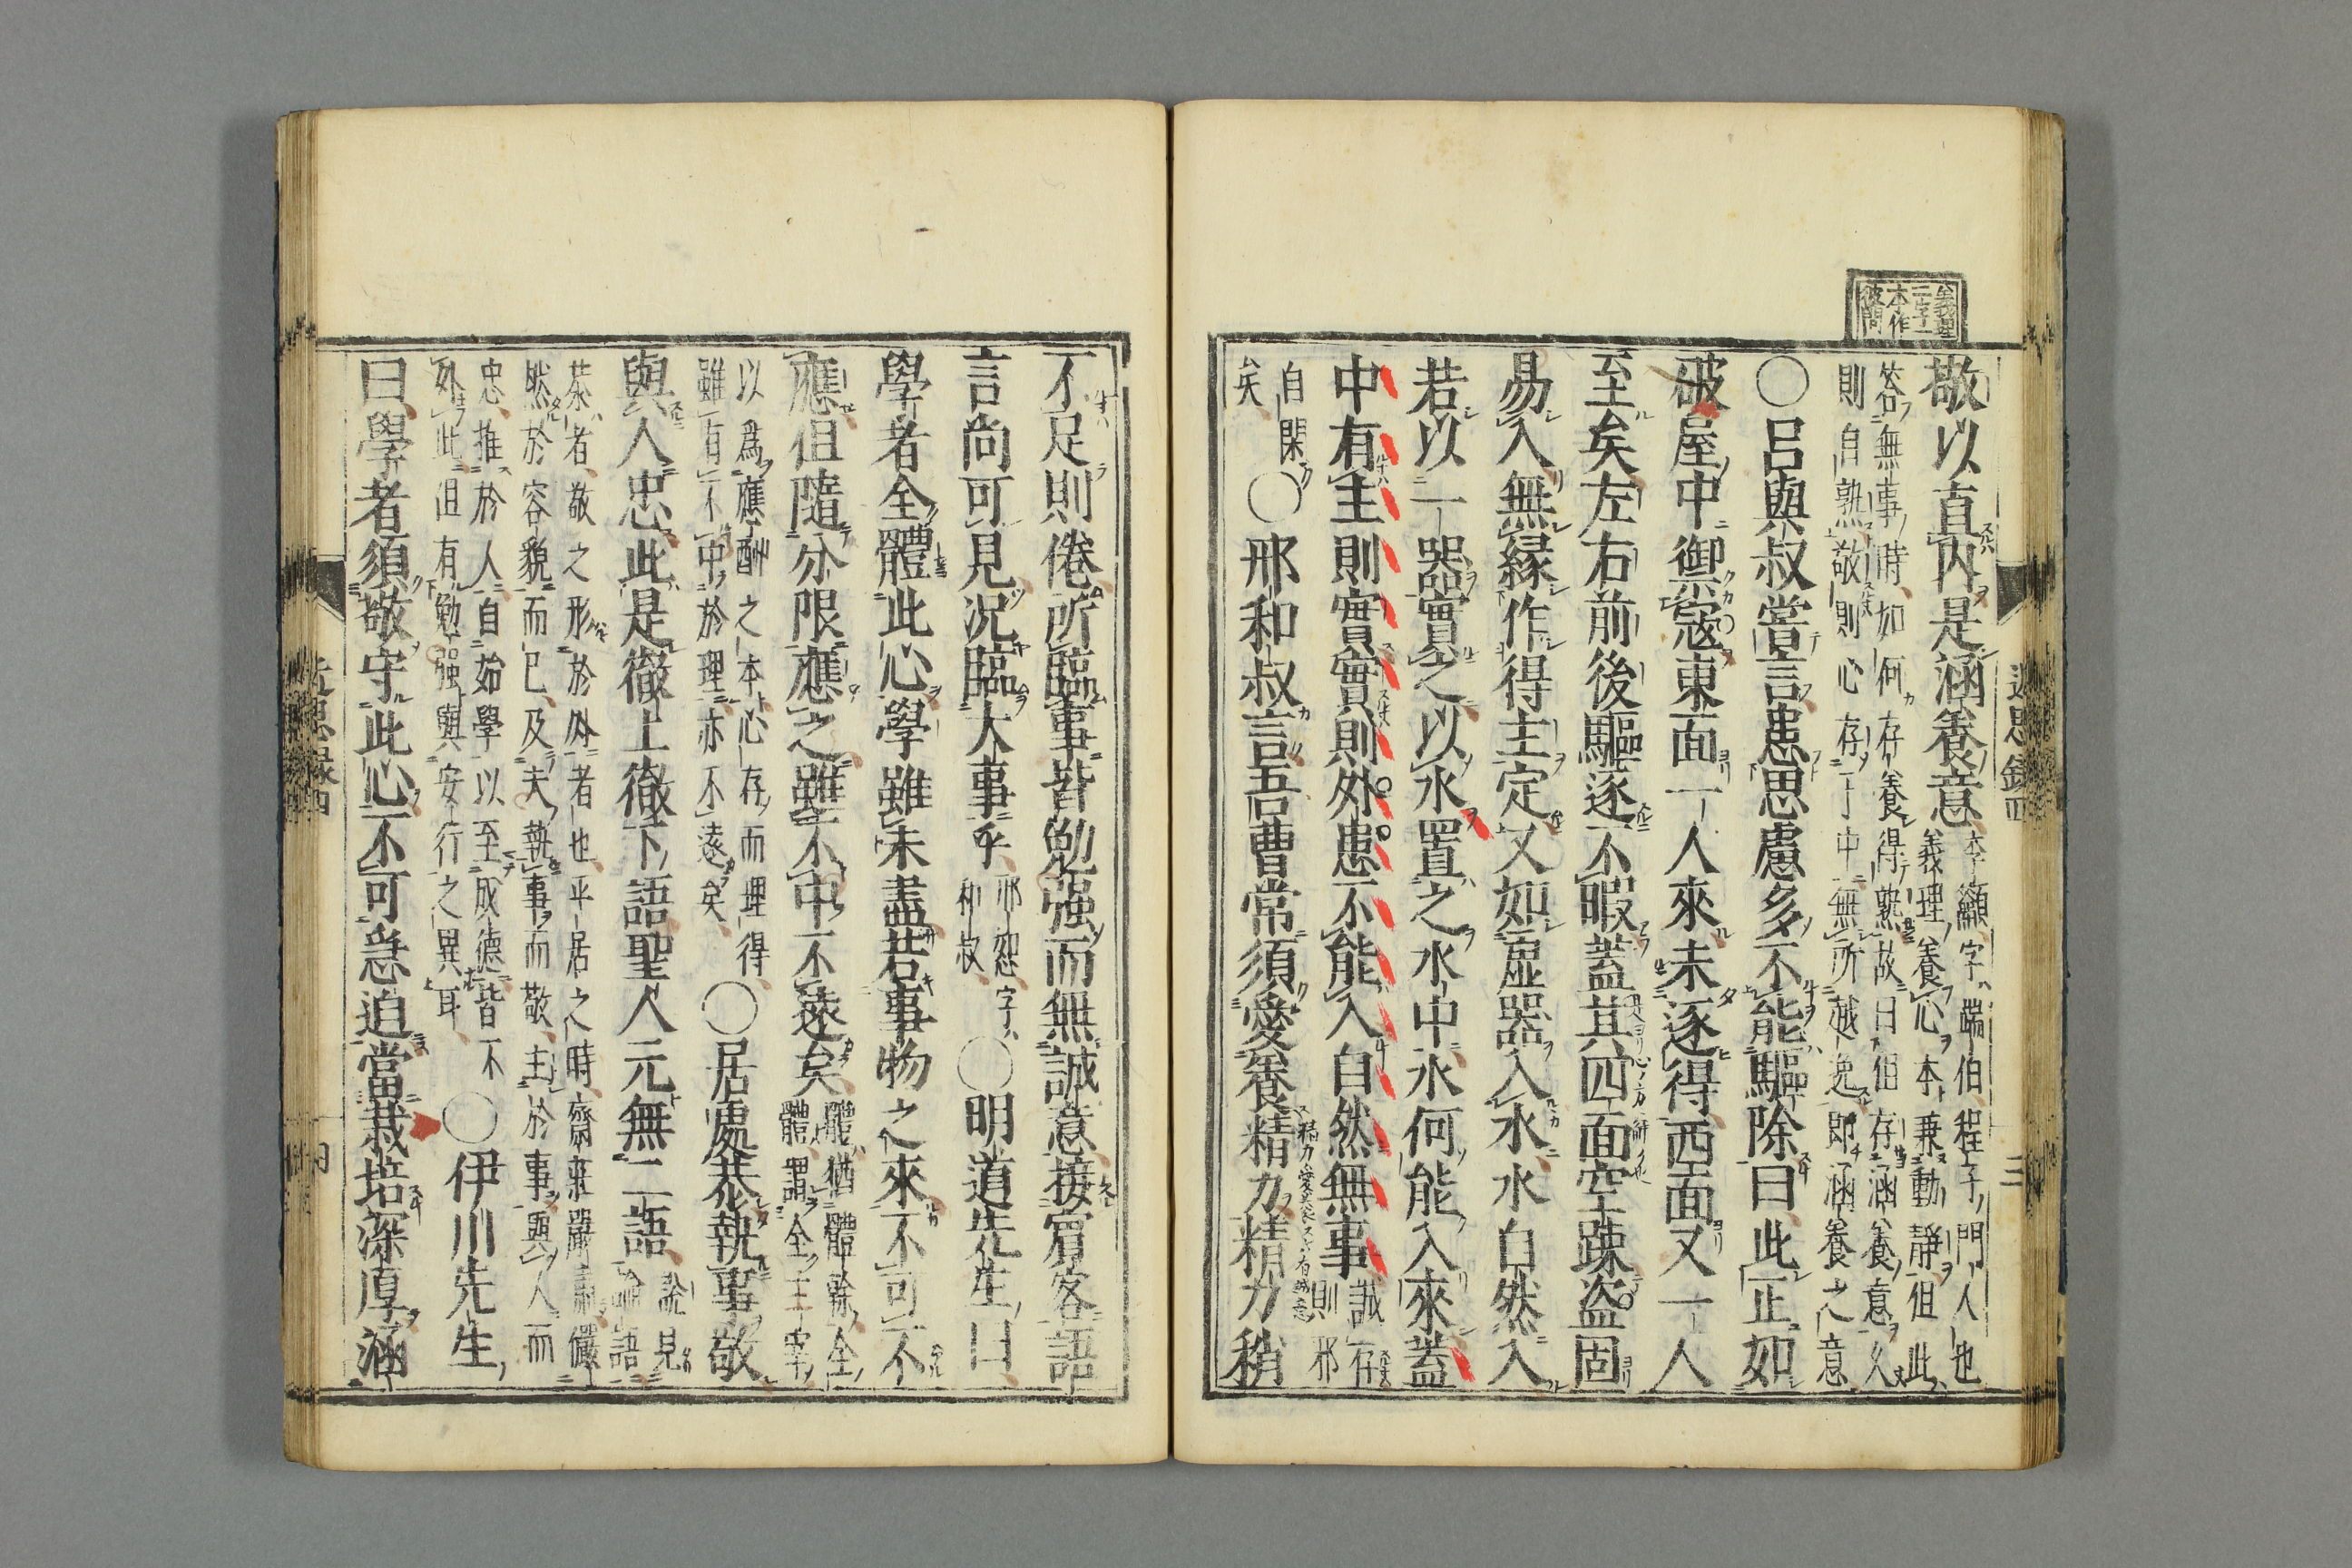 義理
二字一
本作
彼問
近思錄四
三
敬以直內是涵養意李籲字端伯程子門人也
義理養心本兼動靜但此
答無事時如何存養得熟故曰但存涵養意久
則自熟敬則心存于中無所越逸即涵養之意
○呂與叔嘗言患思慮多不能驅除曰此正如
破屋中禦寇東面一人來未逐得西面又一人
至矣左右前後驅逐不暇蓋其四面空踈盗固
易入無緣作得主定又如虛器入水水自然入
若以一器實之以水置之水中水何能入來蓋
中有主則實實則外患不能入自然無事誠存
則邪
自閑
矣○邢和叔言吾曹常須愛養精力精力稍
不足則倦所臨事皆勉强而無誠意接賓客語
言尚可見况臨大事乎邢恕字
和叔○明道先生曰
學者全體此心學雖未盡若事物之來不可不
應但隨分限應之雖不中不遠矣體猶體幹全
體謂全主宰
以為應酬之本心存而理得
雖有不中於理亦不遠矣○居處恭執事敬
與人忠此是徹上徹下語聖人元無二語說見
論語
恭者敬之形於外者也平居之時齋莊嚴肅儼
然於容貌而已及夫執事而敬主於事與人而
忠推於人自始學以至成德皆不
外此但有勉强與安行之異耳○伊川先生
曰學者須敬守此心不可急迫當栽培深厚涵
近思録四
四